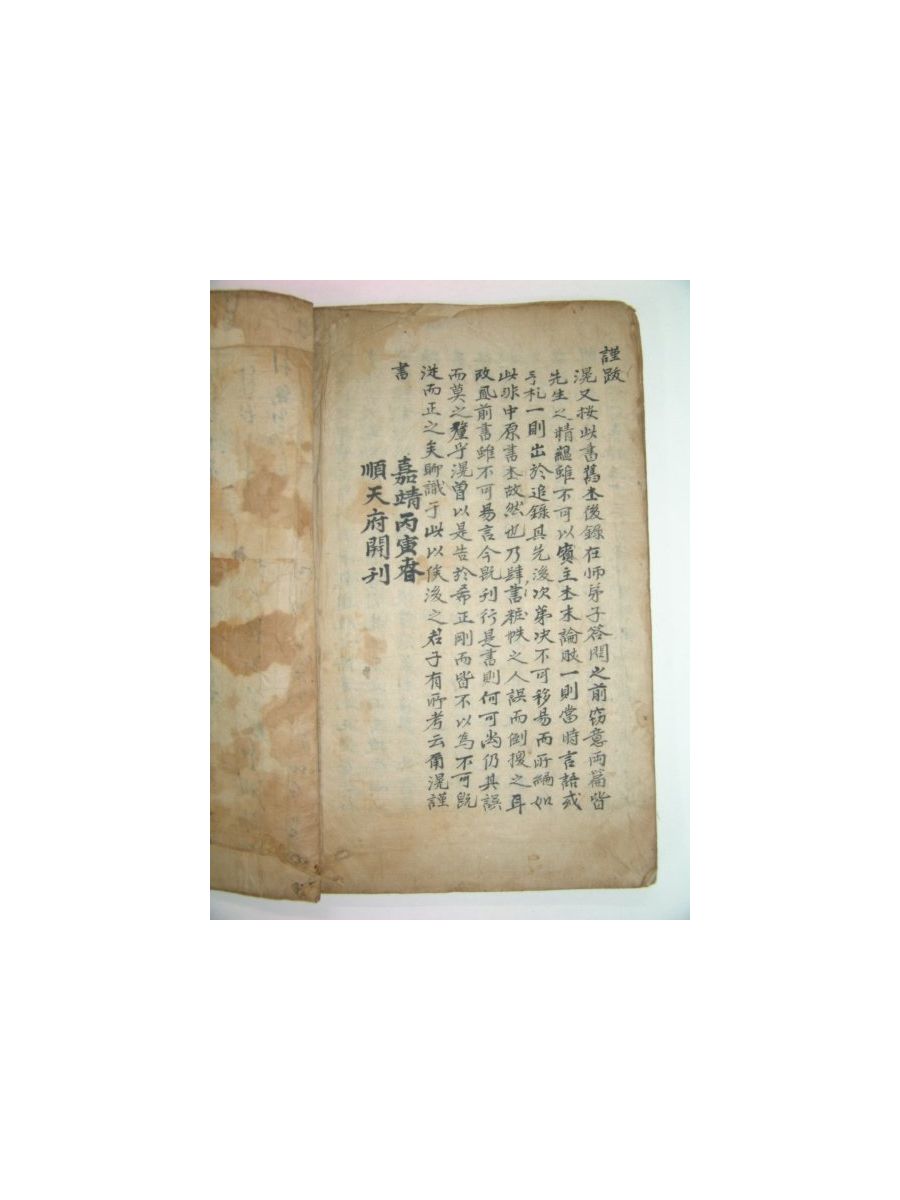 謹跋
滉又按此書舊本後錄在师弟子答問之前窃意兩篇皆
先生之精蘊雖不可以賓主本末論然一則當時言語或
手札一則出於追錄其先後次第决不可移易而所編如
此非中原書本故然也乃肆書粧帙之人誤而倒換之耳
改風前書雖不可易言今旣刊行是書則何可尚仍其誤
而莫之釐乎滉曽以是告於希正剛而皆不以為不可旣
從而正之矣聊識于此以俟後之君子有所考云爾滉謹
書
嘉靖丙寅春
順天府開刊